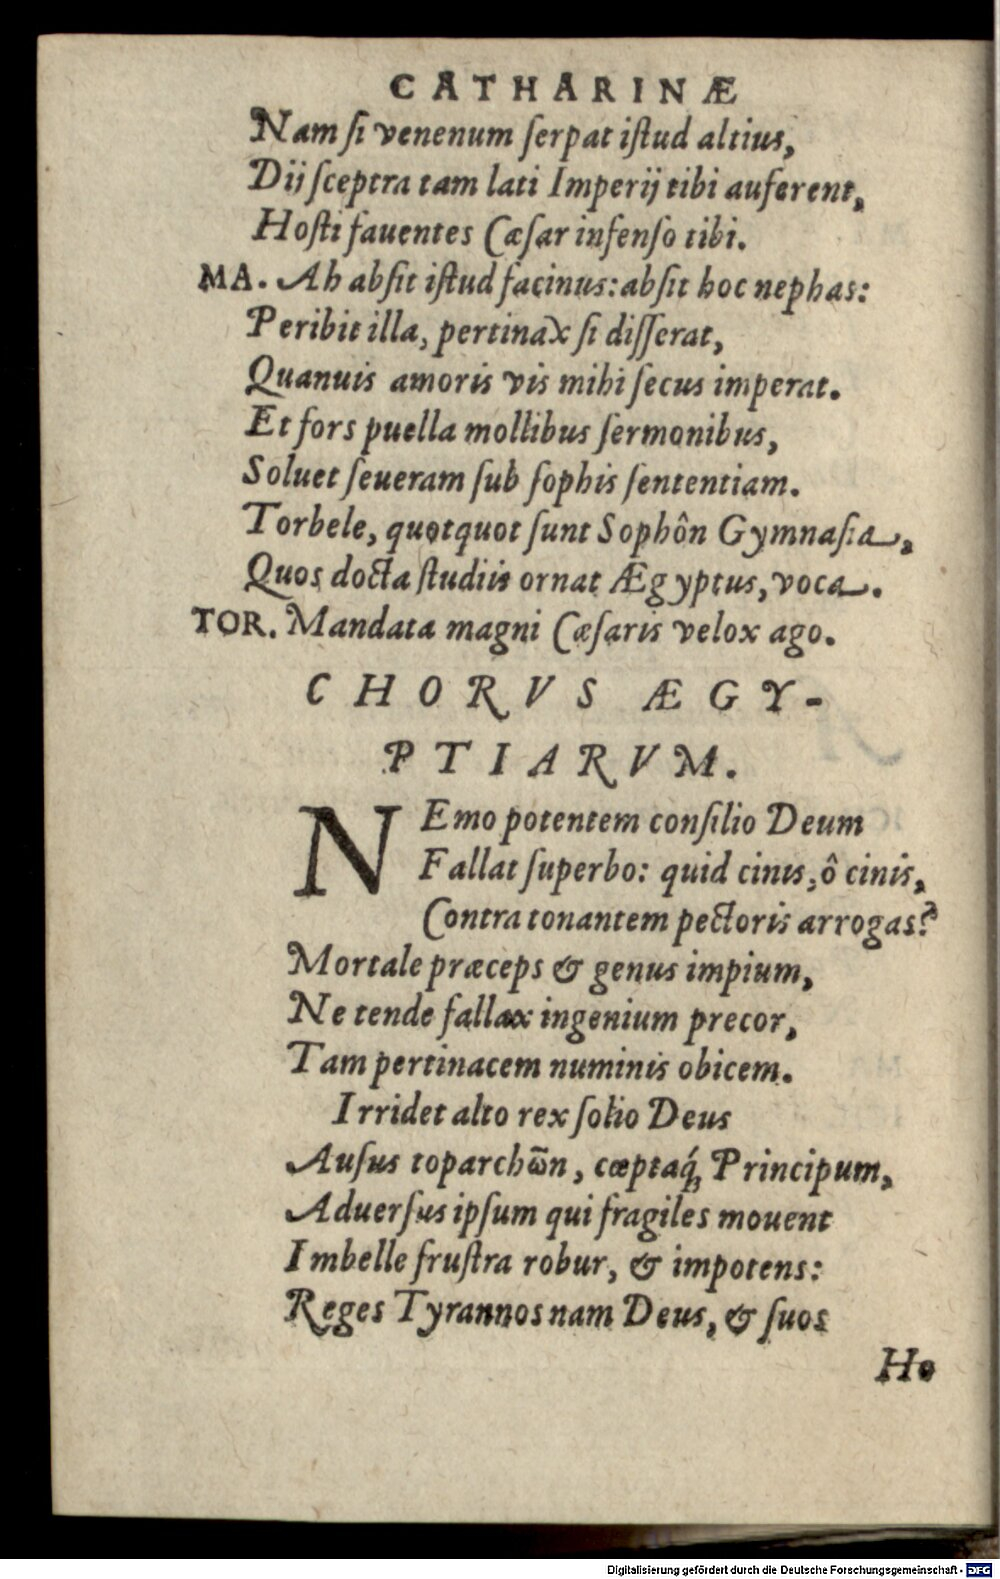 CATHARINÆ
Nam ſi venenum ſerpat iſtud altius,
Dij ſceptra tam lati Imperij tibi auferent,
Hoſti fauentes Cæſar infenſo tibi.
MA. Ah abſit iſtud facinus: abſit hoc nephas:
Peribit illa, pertinax ſi diſſerat,
Quanuis amoris vis mihi ſecus imperat.
Et fors puella mollibus ſermonibus,
Soluet ſeueram ſub ſophis ſententiam.
Torbele, quotquot ſunt Sophôn Gymnaſia,
Quos docta ſtudiis ornat Ægyptus, voca.
TOR. Mandata magni Cæſaris velox ago.
CHORVS ÆGY-
PTIARVM.
NEmo potentem conſilio Deum
Fallat ſuperbo: quid cinis, ô cinis,
Contra tonantem pectoris arrogas?
Mortale præceps & genus impium,
Ne tende fallax ingenium precor,
Tam pertinacem numinis obicem.
Irridet alto rex ſolio Deus
Auſus toparchω̃n, cœptaq́; Principum,
Aduerſus ipſum qui fragiles mouent
Imbelle fruſtra robur, & impotens:
Reges Tyrannos nam Deus, & ſuos
Ho
Digitalisierung gefördert durch die Deutsche Forschungsgemeinschaft - DFG